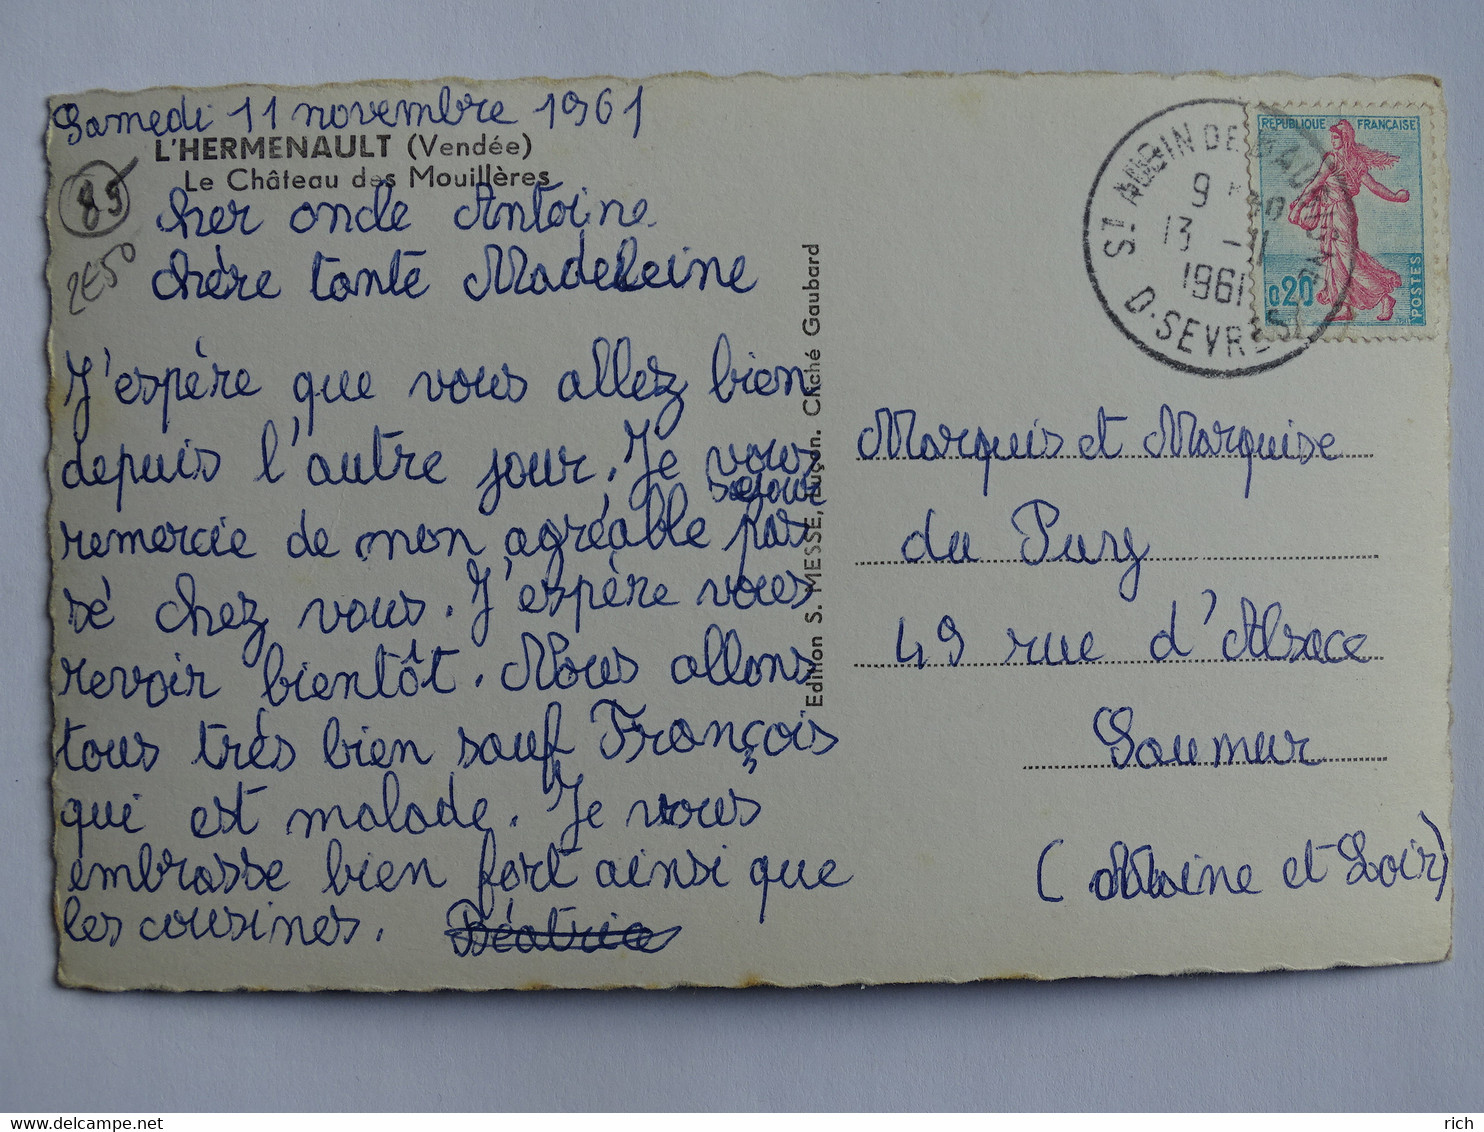 Samedi 11 novembre 1961
L'HERMENAULT (Vendée)
Le Château des Mouillères
85
2E50
cher oncle Antoine
chère tante Madeleine
J'espère que vous allez bien
depuis l'autre jour. Je vous
séjour
remercie de mon agréable pas
sé chez vous. J'espère vous
revoir bientôt. Nous allons
tous très bien sauf François
qui est malade. Je vous
embrasse bien fort ainsi que
les cousines. Béatrice
Edition S. MESSE, Luçon. Cliché Gaubard
ST AUBIN DE BAUBIGNE
9 H
13 - 11
1961
D. SEVRES
REPUBLIQUE FRANÇAISE
0,20
POSTES
Marquis et Marquise
du Pury
49 rue d'Alsace
Saumur
(Maine et Loir)
delcampe.net
rich